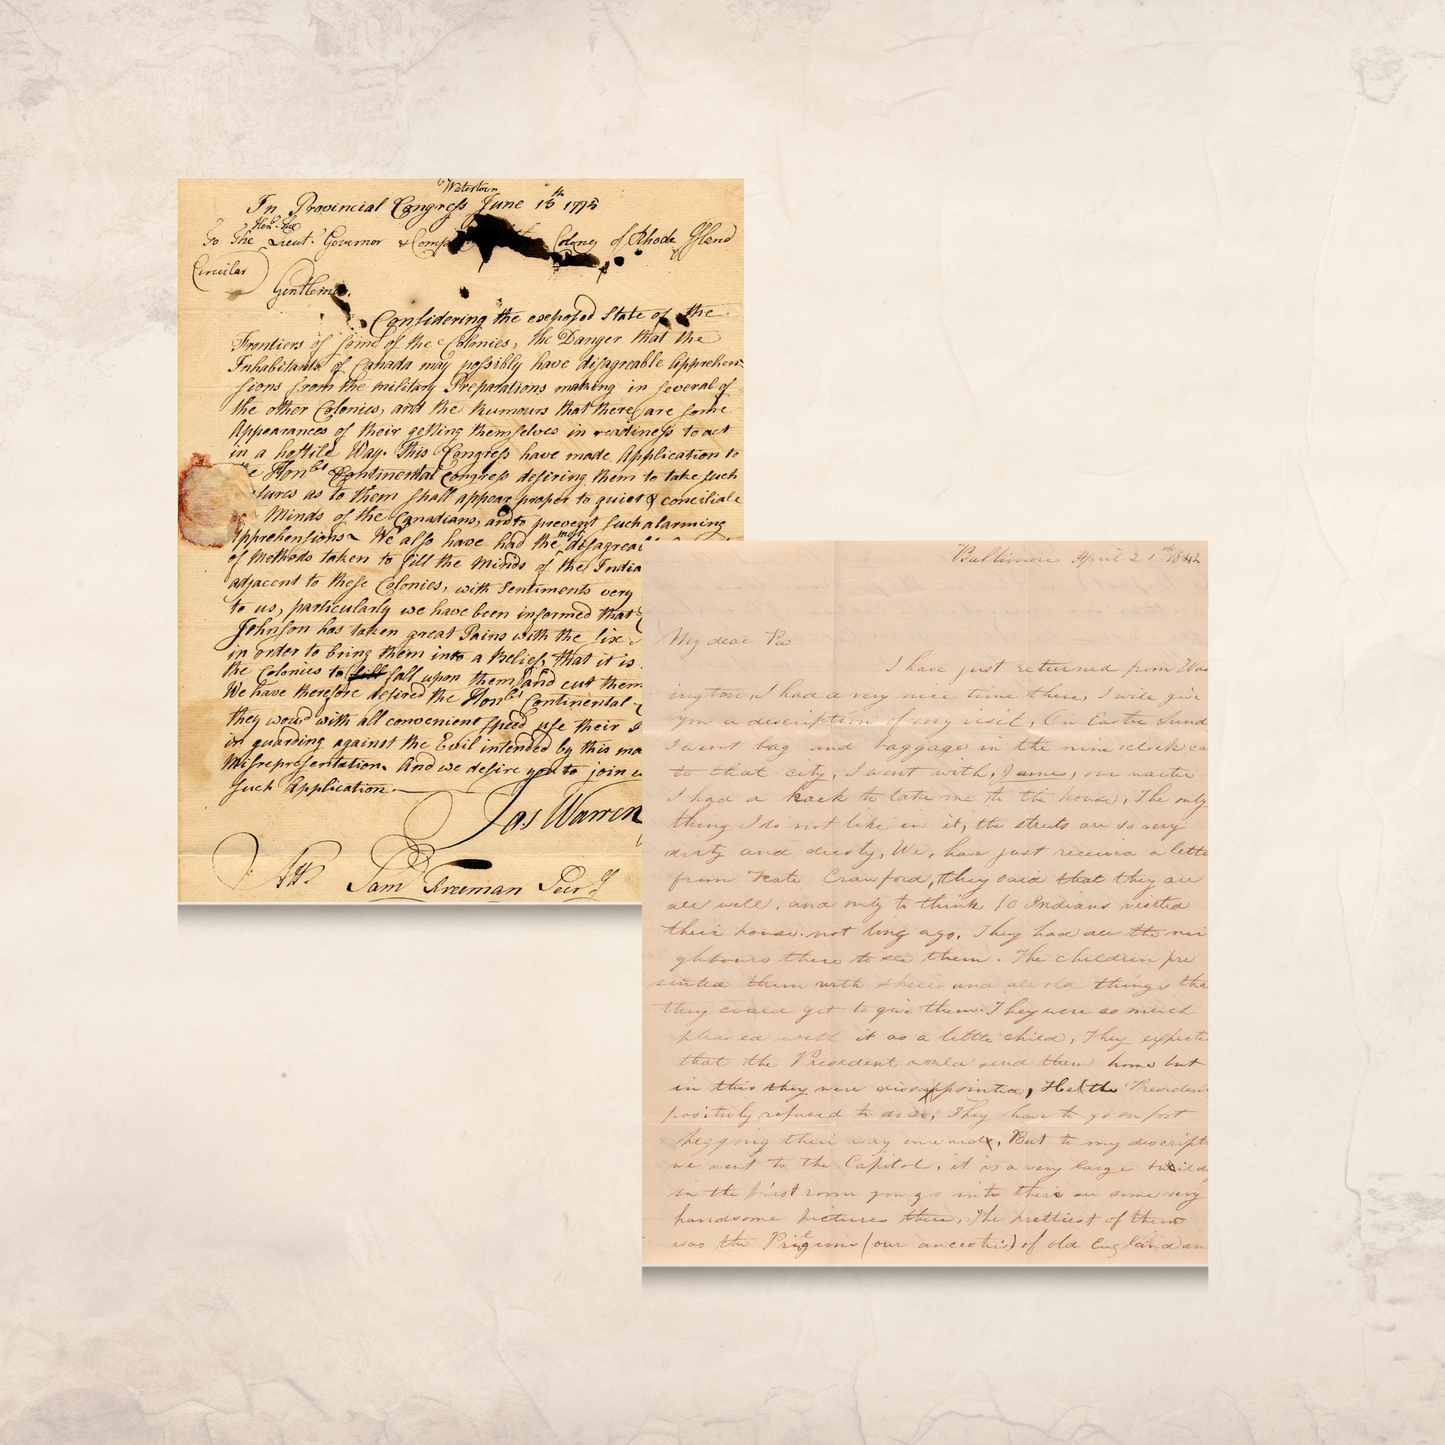 Watertown
In Provincial Congress June 15th 1775
To The Honble. the Lieut. Governor & Comp Colony of Rhode Island
Circular
Gentlemen.
Considering the exposed State of the
Frontiers of some of the Colonies, the Danger that the
Inhabitants of Canada may possibly have disagreable Apprehen
sions from the military Preparations making in several of
the other Colonies, and the Rumours that there are some
Appearances of their getting themselves in readiness to act
in a hostile Way. This Congress have made Application to
the Honble Continental Congress desiring them to take such
sures as to them shall appear proper to quiet & conciliate
Minds of the Canadians, and to prevent such alarming
Apprehensions. We also have had the most disagreal
of Methods taken to fill the Minds of the India
adjacent to these Colonies, with Sentiments very
to us, particularly we have been informed that
Johnson has taken great Pains with the Six
in order to bring them into a Belief, that it is
the Colonies to fall upon them, and cut them
We have therefore desired the Honble Continental
they would with all convenient speed use their
in guarding against the Evil intended by this ma
Misrepresentation. And we desire you to join
such Application.
Jas Warren
Attt Saml Freeman Secry
Baltimore April 21 1842
My dear
I have just returned from Was
ington, I had a very nice time there, I will give
you a description of my visit, On Easter Sund
I went bag and baggage in the nine oclock ca
to that city, I went with, James, our waiter
I had a hack to take me to the house, The only
thing I do not like in it, the streets are so very
dirty and dusty, We, have just received a lette
from Kate Crawford, they said that they are
all well, and only to think 10 Indians visited
their house not long ago. They had all the nei
ghbours there to see them. The children pre
sented them with and all old things tha
they could get to give them. They were as much
pleased with it as a little child, They expecte
that the President would send them home but
in this they were disappointed, He the President
positively refused to do so, They have to go on foot
begging their way onwards, But to my descripti
we went to the Capitol, it is a very large build
in the first room you go into their are some very
handsome pictures there, The prettiest of them
was the Prilgims (our ancestris) of old England an